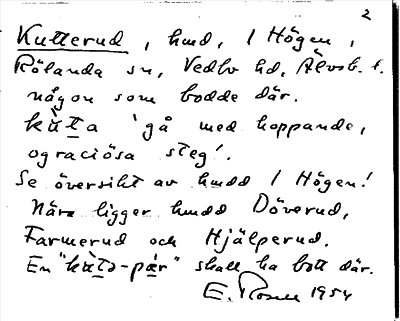 2
Kutterud, hmd, 1 Högen,
Rölanda sn, Vedbo hd, Älvsb. l.
någon som bodde där.
kùt̲a 'gå med hoppande,
ograciösa steg'.
Se översikt av hmdd 1 Högen!
Nära ligger hmdd Döverud,
Farmerud och Hjälperud.
En "kùt̲ə-pær" skall ha bott där.
E. Rosell 1954